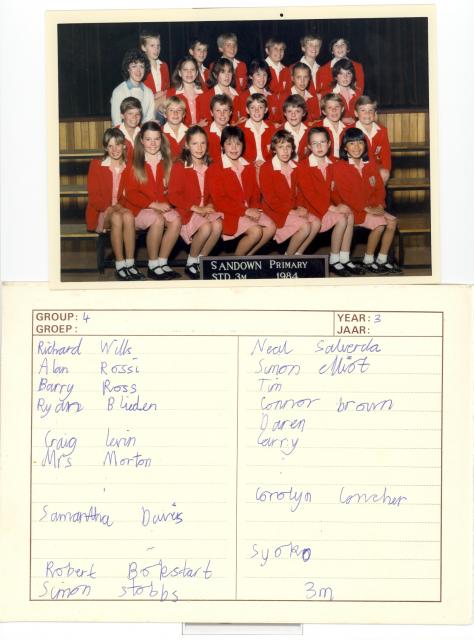 SANDOWN PRIMARY
STD 3M 1984
GROUP: 4
GROEP:
YEAR: 3
JAAR:
Richard Wills
Alan Rossi
Barry Ross
Ryan Blieden
Craig Levin
Mrs Morton
Samantha Davis
Robert Bokstart
Simon Stobbs
Neal Salverda
Simon elliot
Tim
Connor brown
Daren
Garry
Carolyn Concher
Syoko
3m